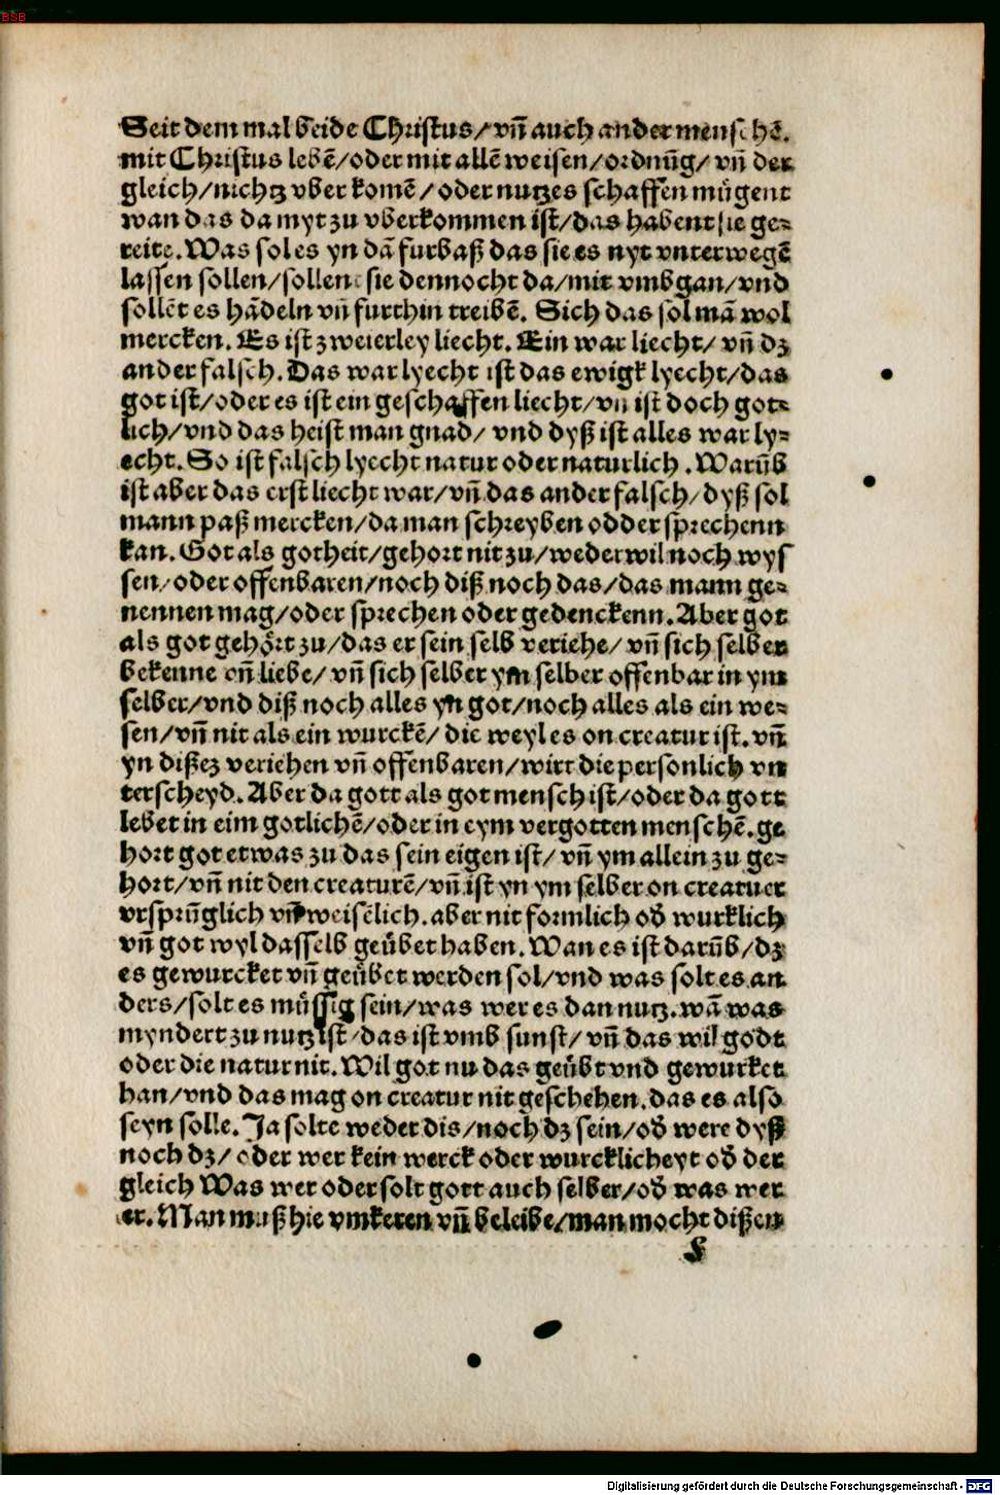 BSB
Seit dem mal beide Christus/vñ auch ander menschē.
mit Christus lebē/oder mit allē weisen/ordnūg/vñ der
gleich/nichtz vber komē/oder nutzes schaffen mügent
wan das da myt zu vberkommen ist/das habent sie ge⸗
reite. Was sol es yn dā furbaß das sie es nyt vnterwegē
lassen sollen/sollen sie dennocht da/mit vmbgan/vnd
sollēt es hādeln vñ furthin treibē. Sich das sol mā wol
mercken. Es ist zweierley liecht. Ein war liecht/vñ dz
ander falsch. Das war lyecht ist das ewigk lyecht/das
got ist/oder es ist ein geschaffen liecht/vñ ist doch got⸗
lich/vnd das heist man gnad/vnd dyß ist alles war ly⸗
echt. So ist falsch lyecht natur oder naturlich. Warūb
ist aber das erst liecht war/vñ das ander falsch/dyß sol
mann paß mercken/da man schreyben odder sprechenn
kan. Got als gotheit/gehort nit zu/weder wil noch wys
sen/oder offenbaren/noch diß noch das/das mann ge⸗
nennen mag/oder sprechen oder gedenckenn. Aber got
als got gehört zu/das er sein selb veriehe/vñ sich selber
bekenne vñ liebe/vñ sich selber ym selber offenbar in ym
selber/vnd diß noch alles yn got/noch alles als ein we⸗
sen/vñ nit als ein wurckē/die weyl es on creatur ist. vñ
yn dißez veriehen vñ offenbaren/wirt die personlich vn
terscheyd. Aber da gott als got mensch ist/oder da gott
lebet in eim gotlichē/oder in eym vergotten menschē. ge
hort got etwas zu das sein eigen ist/vñ ym allein zu ge⸗
hort/vñ nit den creaturē/vñ ist yn ym selber on creatuer
vrsprūglich vñ weisēlich. aber nit formlich od̄ wurklich
vñ got wyl dasselb geübet haben. Wan es ist darūb/dz
es gewurcket vñ geübet werden sol/vnd was solt es an
ders/solt es müssig sein/was wer es dan nutz. wā was
myndert zu nutz ist/das ist vmb sunst/vñ das wil godt
oder die natur nit. Wil got nu das geübt vnd gewurket
han/vnd das mag on creatur nit geschehen. das es also
seyn solle. Ja solte weder dis/noch dz sein/od̄ were dyß
noch dz/oder wer kein werck oder wurcklicheyt od̄ der
gleich Was wer oder solt gott auch selber/od̄ was wer
er. Man muß hie vmkeren vñ beleibe/man mocht dißen
F
Digitalisierung gefördert durch die Deutsche Forschungsgemeinschaft - DFG